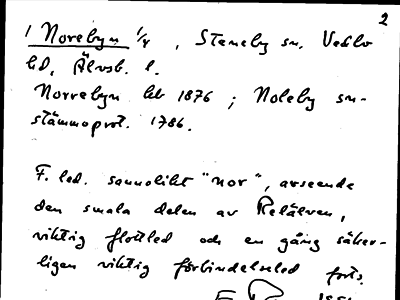 2
1 Norebyn 1/4, Steneby sn, Vedbo
hd, Älvsb. l.
Norrebyn kb 1876; Noleby sn-
stämmoprot. 1786.
F. led. sannolikt "nor", avseende
den smala delen av Relälven,
viktig flottled och en gång säker-
ligen viktig förbindelseled forts.